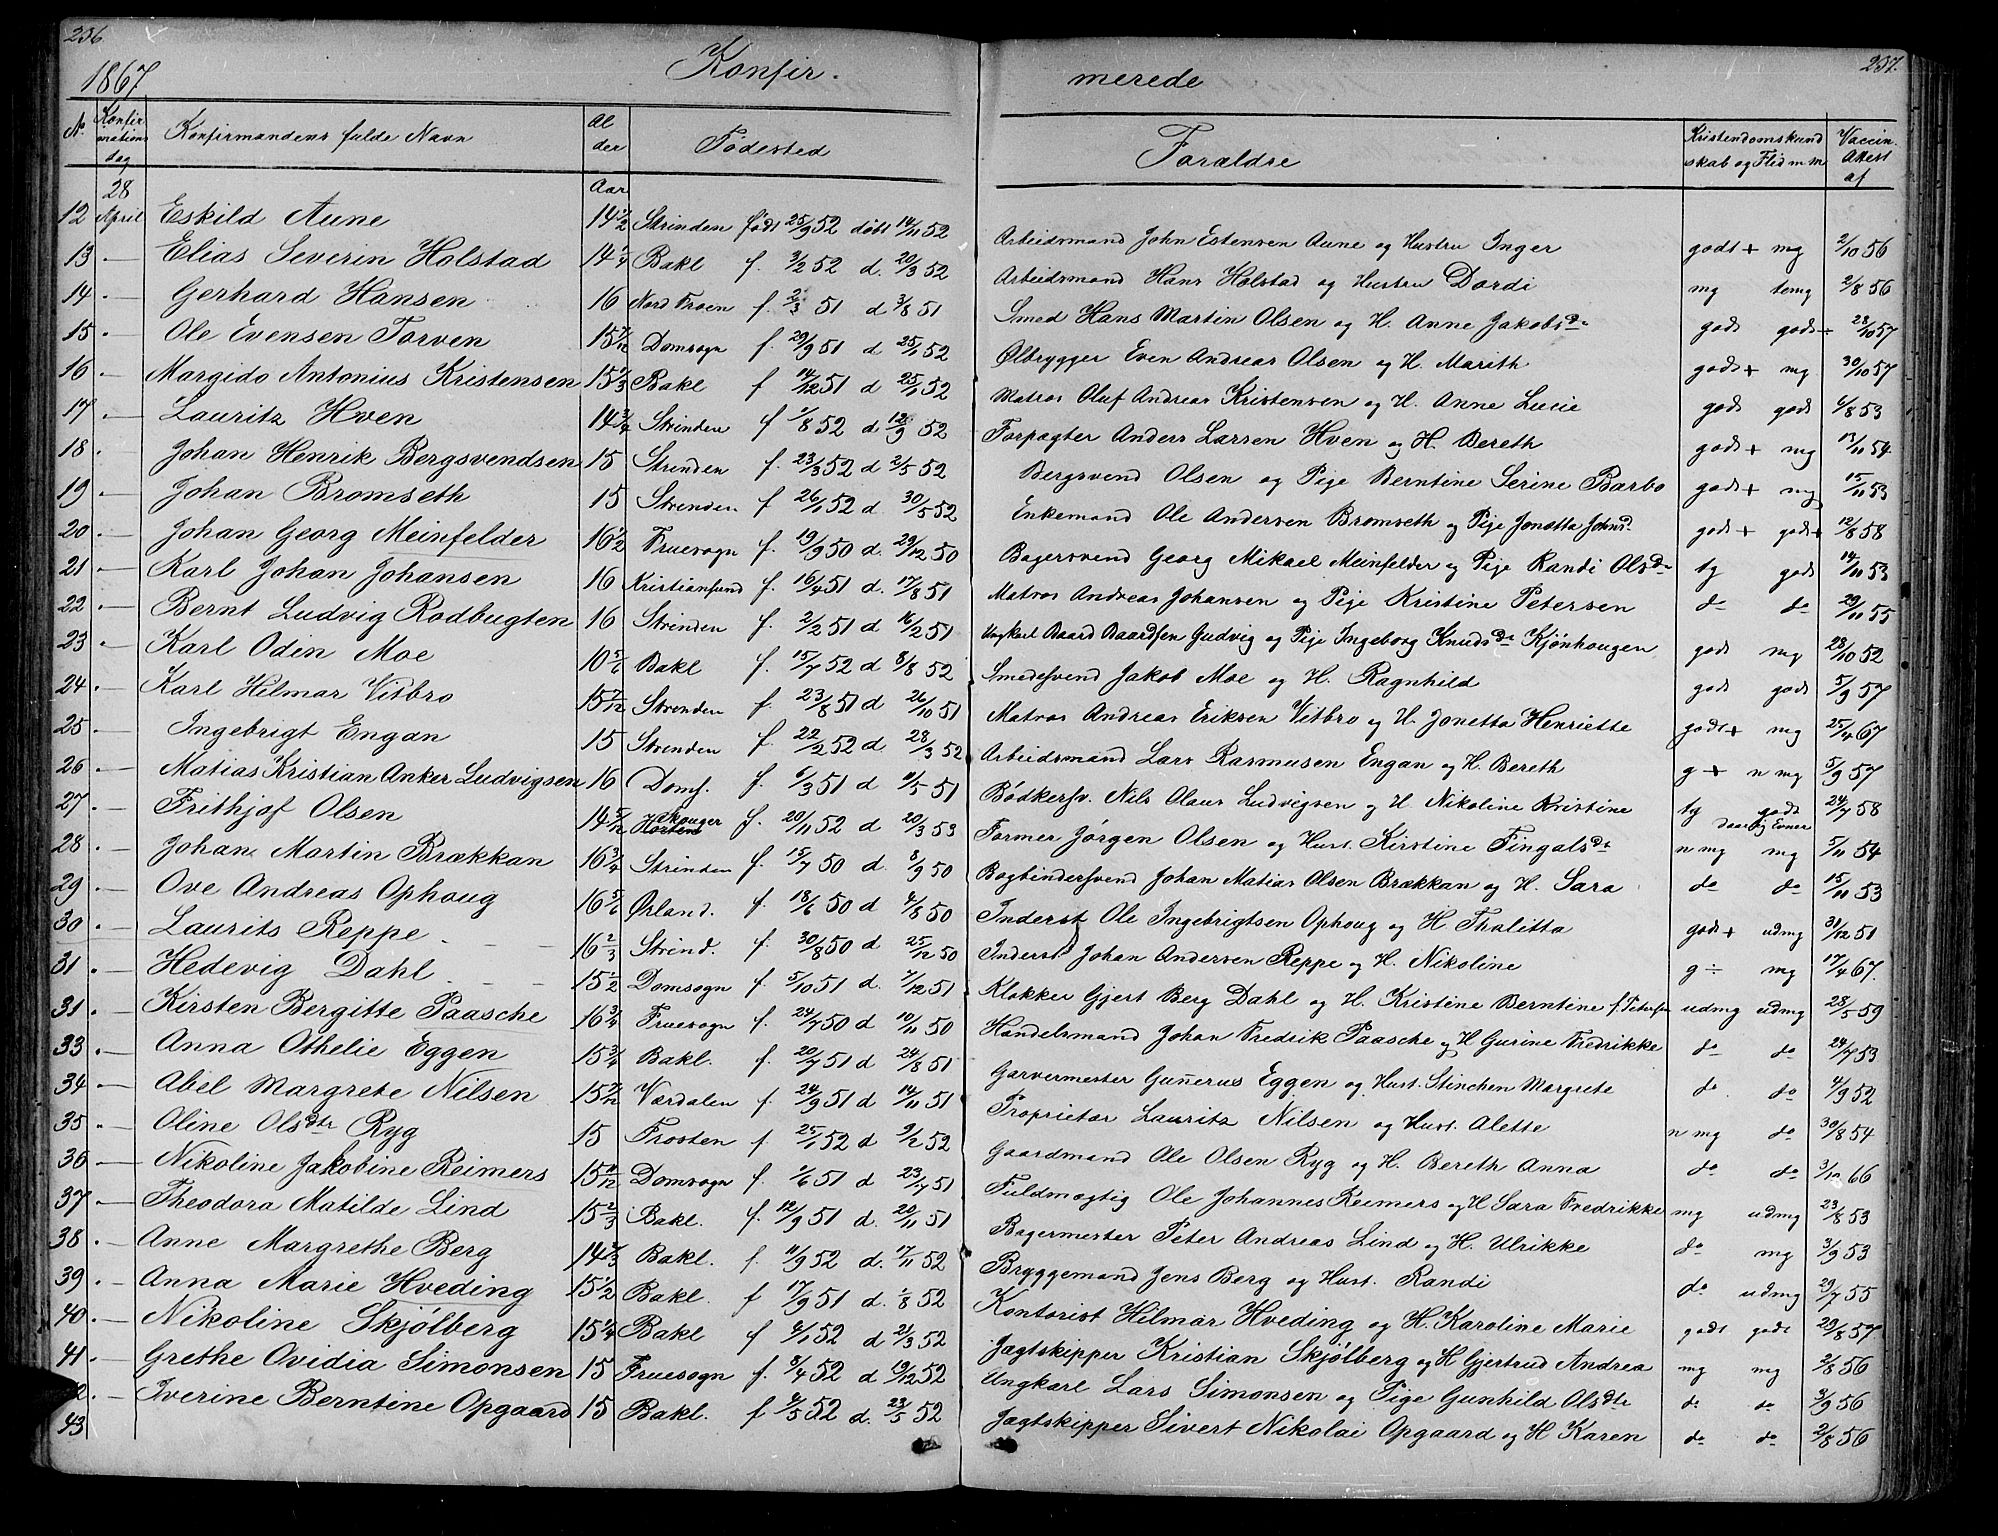 236
1867.
Konfir-
merede
237.
No
Konfirmations dag
Konfirmandens fulde Navn
Alder
Fødested
Forældre
Kristendomskundskab og Flid m m
Vaccin. Attest af
28 April
Aar
12 Eskild Aune 14 1/2 Strinden født 25/9 52 døbt 14/11 52 Arbeidsmand John Estensen Aune og Hustru Inger godt + mg 2/10 56
13 . — Elias Severin Holstad 14 1/4 Bakl f. 3/2 52 d. 20/3 52 Arbeidsmand Hans Holstad og Hustru Dordi mg temg 2/8 56
14 . — Gerhard Hansen 16 Nord Froen f. 2/3 51 d 3/8 51 Smed Hans Martin Olsen og H. Anne Jakobsdr godt godt + 28/10 57
15 . — Ole Evensen Torven 15 7/12 Domsogn f. 29/9 51 d 25/1 52 Ølbrygger Even Andreas Olsen og H. Marith godt + mg 30/10 57
16 — Margido Antonius Kristensen 15 1/3 Bakl f 14/12 51 d 25/1 52 Matros Oluf Andreas Kristensen og H. Anne Lucie godt godt 6/8 53
17 . — Lauritz Hven 14 3/4 Strinden f 1/8 52 d 12/9 52 Forpagter Anders Larsen Hven og H. Bereth godt + mg 13/11 54
18 . — Johan Henrik Bergsvendsen 15 Strinden f. 23/3 52 d 2/5 52 Bergsvend Olsen og Pige Berntine Serine Barbo godt + mg 15/11 53
19 . — Johan Bromseth 15 Strinden f 26/1 52 d. 30/5 52 Enkemand Ole Andersen Bromseth og Pige Jonetta Johnsd. godt + godt + 12/8 58
20 . — Johan Georg Meinfelder 16 1/2 Fruesogn f. 19/9 50 d. 29/12 50 Bagersvend Georg Mikael Meinfelder og Pige Randi Olsdr tg godt 14/11 53
21 . — Karl Johan Johansen 16 Kristiansund f. 16/4 51 d. 17/8 51 Matros Andreas Johansen og Pige Kristine Petersen do do 29/11 55
22 . — Bernt Ludvig Rodbugten 16 Strinden f. 2/2 51 d 16/2 51 Ungkarl Baard Baardsen Gudvig og Pige Ingeborg Knudsdr Kjønhougen godt mg 28/10 52
23 . — Karl Odin Moe 10 5/6 Bakl f. 15/7 52 d 8/8 52 Smedesvend Jakob Moe og H. Ragnhild godt godt 5/9 57
24 . — Karl Hilmar Vitbro 15 7/12 Strinden f. 23/8 51 d 26/10 51 Matros Andreas Eriksen Vitbro og H. Jonetta Henriette godt + mg 25/4 67
25 . — Ingebrigt Engan 15 Strinden f. 22/2 52 d 28/3 52 Arbeidsmand Lars Rasmusen Engan og H. Bereth g + n mg 5/9 57
26 . — Matias Kristian Anker Ludvigsen 16 Doms. f. 6/3 51 d 9/5 51 Bødkersv. Nils Olaus Ludvigsen og H Nikoline Kristine tg godt daarlig Evner 24/7 58
27 . — Frithjof Olsen 14 5/12 Horten Skouger f. 20/11 52 d 20/3 53 Former Jørgen Olsen og Hust. Kirstine Fingalsdr n mg mg 5/11 54
28 . — Johan Martin Brækkan 16 3/4 Strinden f. 15/7 50 d. 8/9 50 Bogbindersvend Johan Matias Olsen Brækkan og H. Sara do do 15/11 53
29 . — Ove Andreas Ophoug 16 5/6 Ørland. f. 18/6 50 d 4/8 50 Inderst Ole Ingebrigtsen Ophoug og H Thalitta godt + udmg 31/12 51
30 . — Laurits Reppe 16 2/3 Strind. f. 30/8 50 d 25/12 50 Inderst Johan Andersen Reppe og H. Nikoline g ÷ mg 17/4 67.
31 . — Hedevig Dahl 15 1/2 Domsogn f. 5/10 51 d 7/12 51 Klokker Gjert Berg Dahl og H. Kristine Berntine f. Petersen udmg udmg 28/5 59
31 . — Kirsten Bergitte Paasche 16 3/4 Fruesogn f. 24/7 50 d 10/11 50 Handelsmand Johan Fredrik Paasche og H Gurine Fredrikke do do 24/7 53
33 . — Anna Othelie Eggen 15 3/4 Bakl. f. 20/7 51 d 24/8 51 Garvermester Gunerus Eggen og Hust. Stinchen Margrete do do 4/9 52
34 . — Abel Margrete Nilsen 15 7/12 Værdalen f. 24/9 51 d 14/11 51 Proprietær Lauritz Nilsen og Hust. Alette n mg do 30/8 54
35 . — Oline Olsdtr Ryg 15 Frosten f. 25/1 52 d 9/2 52 Gaardmand Ole Olsen Ryg og H. Bereth Anna do do 3/10 66
36 — Nikoline Jakobine Reimers 15 11/12 Domsogn f. 1/6 51 d 23/7 51 Fuldmægtig Ole Johannes Reimers og H Sara Fredrikke mg udmg 23/8 53
37 . — Theodora Matilde Lind 15 2/3 Bakl. f. 12/9 51 d. 20/11 51 Bagermester Peter Andreas Lind og H. Ulrikke do mg 3/9 53
38 . — Anne Margrethe Berg 14 2/3 Bakl. f. 11/9 52 d. 17/11 52 Bryggemand Jens Berg og Hust. Randi do udmg 29/7 55
39 . — Anna Marie Hveding 15 1/2 Bakl. f 17/9 51 d. 1/8 52 Kontorist Hilmar Hveding og H. Karoline Marie godt godt 29/8 57
40 . — Nikoline Skjølberg 15 1/4 Bakl f 6/1 52 d 21/3 52 Jagtskipper Kristian Skjølberg og H Gjertrud Andrea mg mg 2/8 56
41 . — Grethe Ovidia Simonsen 15 Fruesogn f. 8/4 52 d 19/12 52 Ungkarl Lars Simonsen og Pige Gunhild Olsdtr do do 3/9 56
42 . — Iverine Berntine Opgaard 15 Bakl. f 4/5 52 d. 23/5 52 Jagtskipper Sivert Nikolai Opgaard og H Karen do do 2/8 56
43